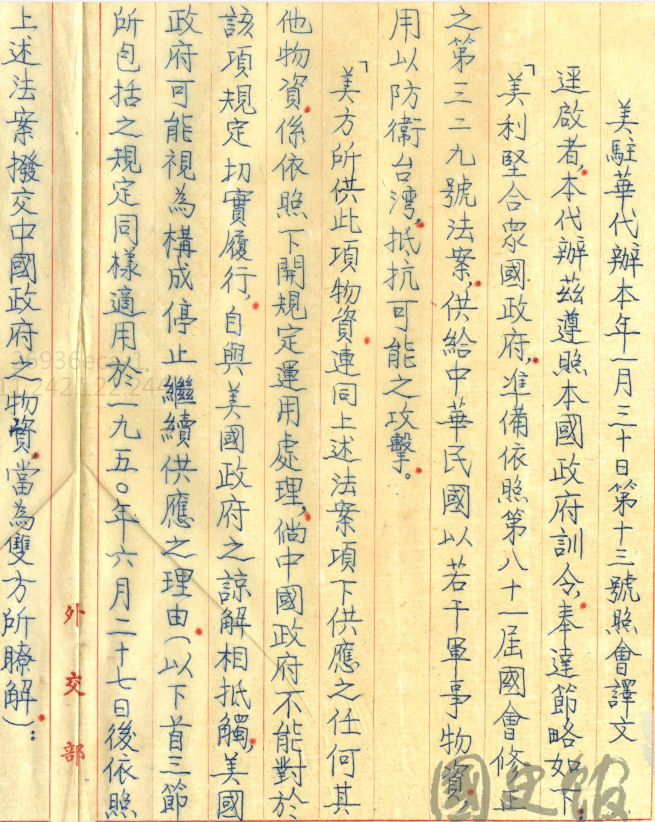 美駐華代辦本年一月三十日第十三號照會譯文
逕啟者，本代辦茲遵照本國政府訓令，奉達節略如下：
「美利堅合眾國政府，准備依照第八十一屆國會修正
之第三二九號法案，供給中華民國以若干軍事物資，
用以防衛台湾，抵抗可能之攻擊。
「美方所供此項物資連同上述法案項下供應之任何其
他物資，係依照下開規定運用處理，倘中國政府不能對於
該項規定切實履行，自與美國政府之諒解相抵觸，美國
政府可能視為構成停止繼續供應之理由，（以下首三節
所包括之規定同樣適用於一九五〇年六月二十七日後依照
外交部
上述法案撥交中國政府之物資，當為雙方所瞭解）：
國史館